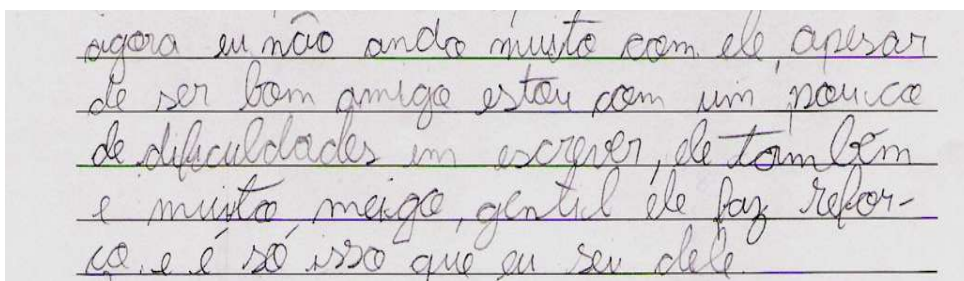 agora eu não ando muito com ele, apesar
de ser bom amigo estou com um pouco
de dificuldades em escrever, ele também
e muito meigo, gentil ele faz refor-
ço, e é só isso que eu sei dele